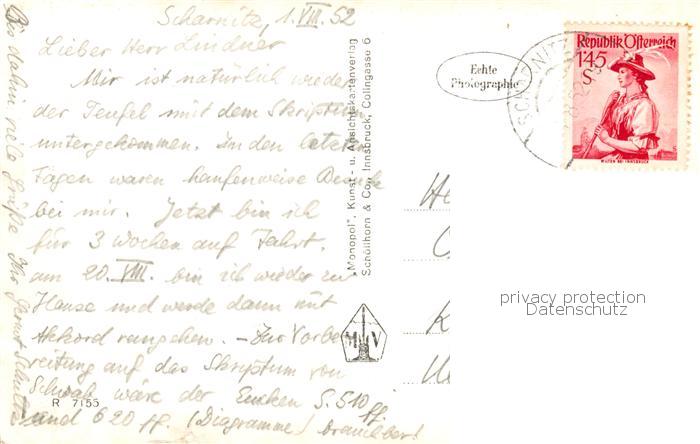 Scharnitz, 1.VIII.52
Lieber Herr Lindner
Mir ist natürlich wieder
der Teufel mit dem Skriptum
untergekommen. In den letzten
Tagen waren haufenweise
bei mir. Jetzt bin ich
für 3 Wochen auf Fahrt.
am 20.VIII. bin ich wieder zu
Hause und werde dann mit
Akkord rangehen. – Zur Vorbe-
reitung auf das Skriptum von
Schwab wäre der S. 510 ff
und 620 ff. (Diagramme) brauchbar!
Bis dahin viele Grüße Ihr
R 7155
"Monopol", Kunst- u. Ansichtskartenverlag
Schöllhorn & Co., Innsbruck, Collingasse 6
M V
Echte
Photographie
SCHARNITZ
Republik Österreich
1.45
S
WILTEN BEI INNSBRUCK
privacy protection
Datenschutz